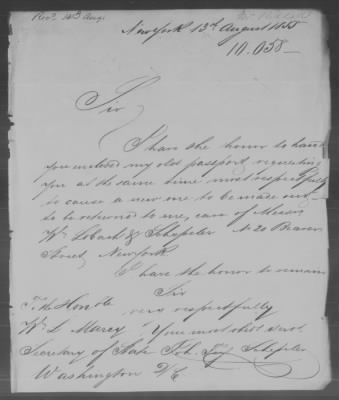 Recd 14 Augt
New York 13th August 1855
10.058
Sir
I have the honor to hand
you enclosed my old passport, requesting
you at the same time most respectfully
to cause a new one to be made out
to be returned to me, care of Messrs
Wm Lobach & Schepeler No 20 Beaver
Street, New York
I have the honor to remain
Sir
To the Honble very respectfully
Wm L. Marcy Your most obdt servt
Secretary of State Joh. Schepeler
Washington DC